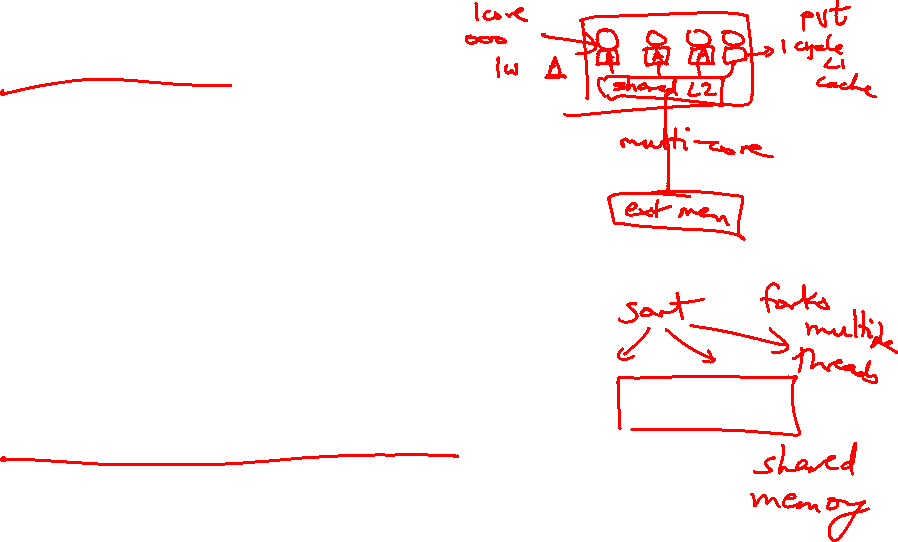 1 core
ooo
lw A
pvt
1 cycle
L1
cache
shared L2
multi-core
ext mem
sort
forks
multiple
threads
shared
memory